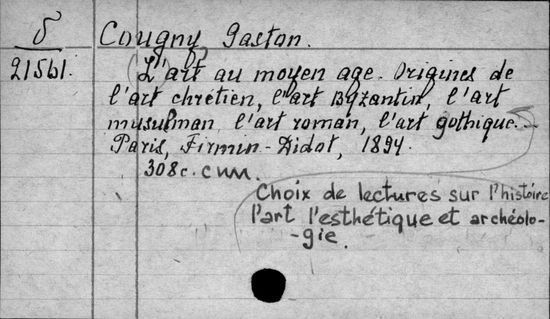 δ
21561.
Cougny, Gaston.
(L')art au moyen age. Origines de
l'art chrétien, l'art Byzantin, l'art
musulman, l'art roman, l'art gothique.
Paris, Firmin-Didot, 1894.
308c.
Choix de lectures sur l'histoire
l'art l'esthétique et archéolo-
-gie.